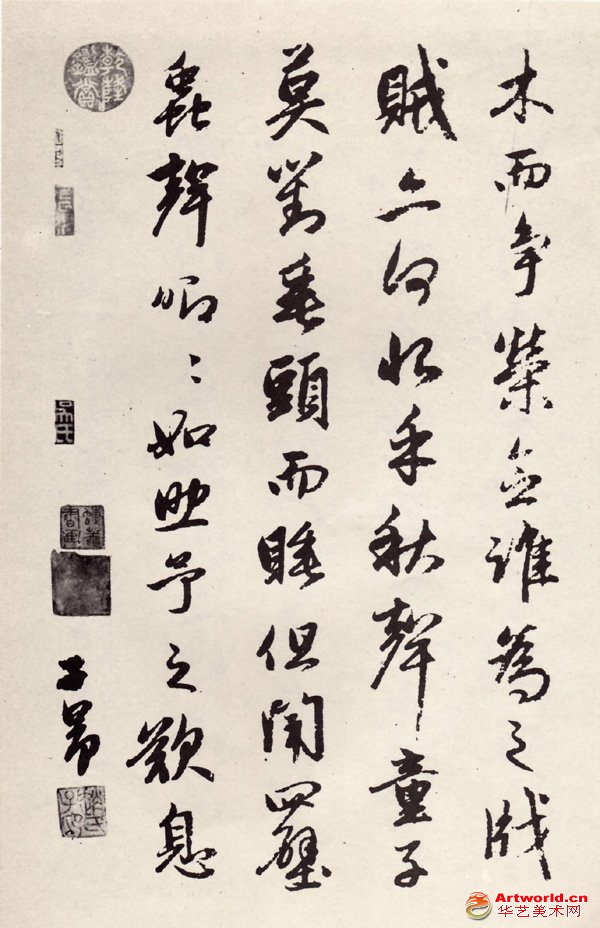 木而争榮念誰為之戕
賊亦何恨乎秋聲童子
莫對垂頭而睡但聞四壁
蟲聲唧〻如助予之歎息
子昂
趙氏子昂
乾隆鑑賞
Artworld.cn
华艺美术网